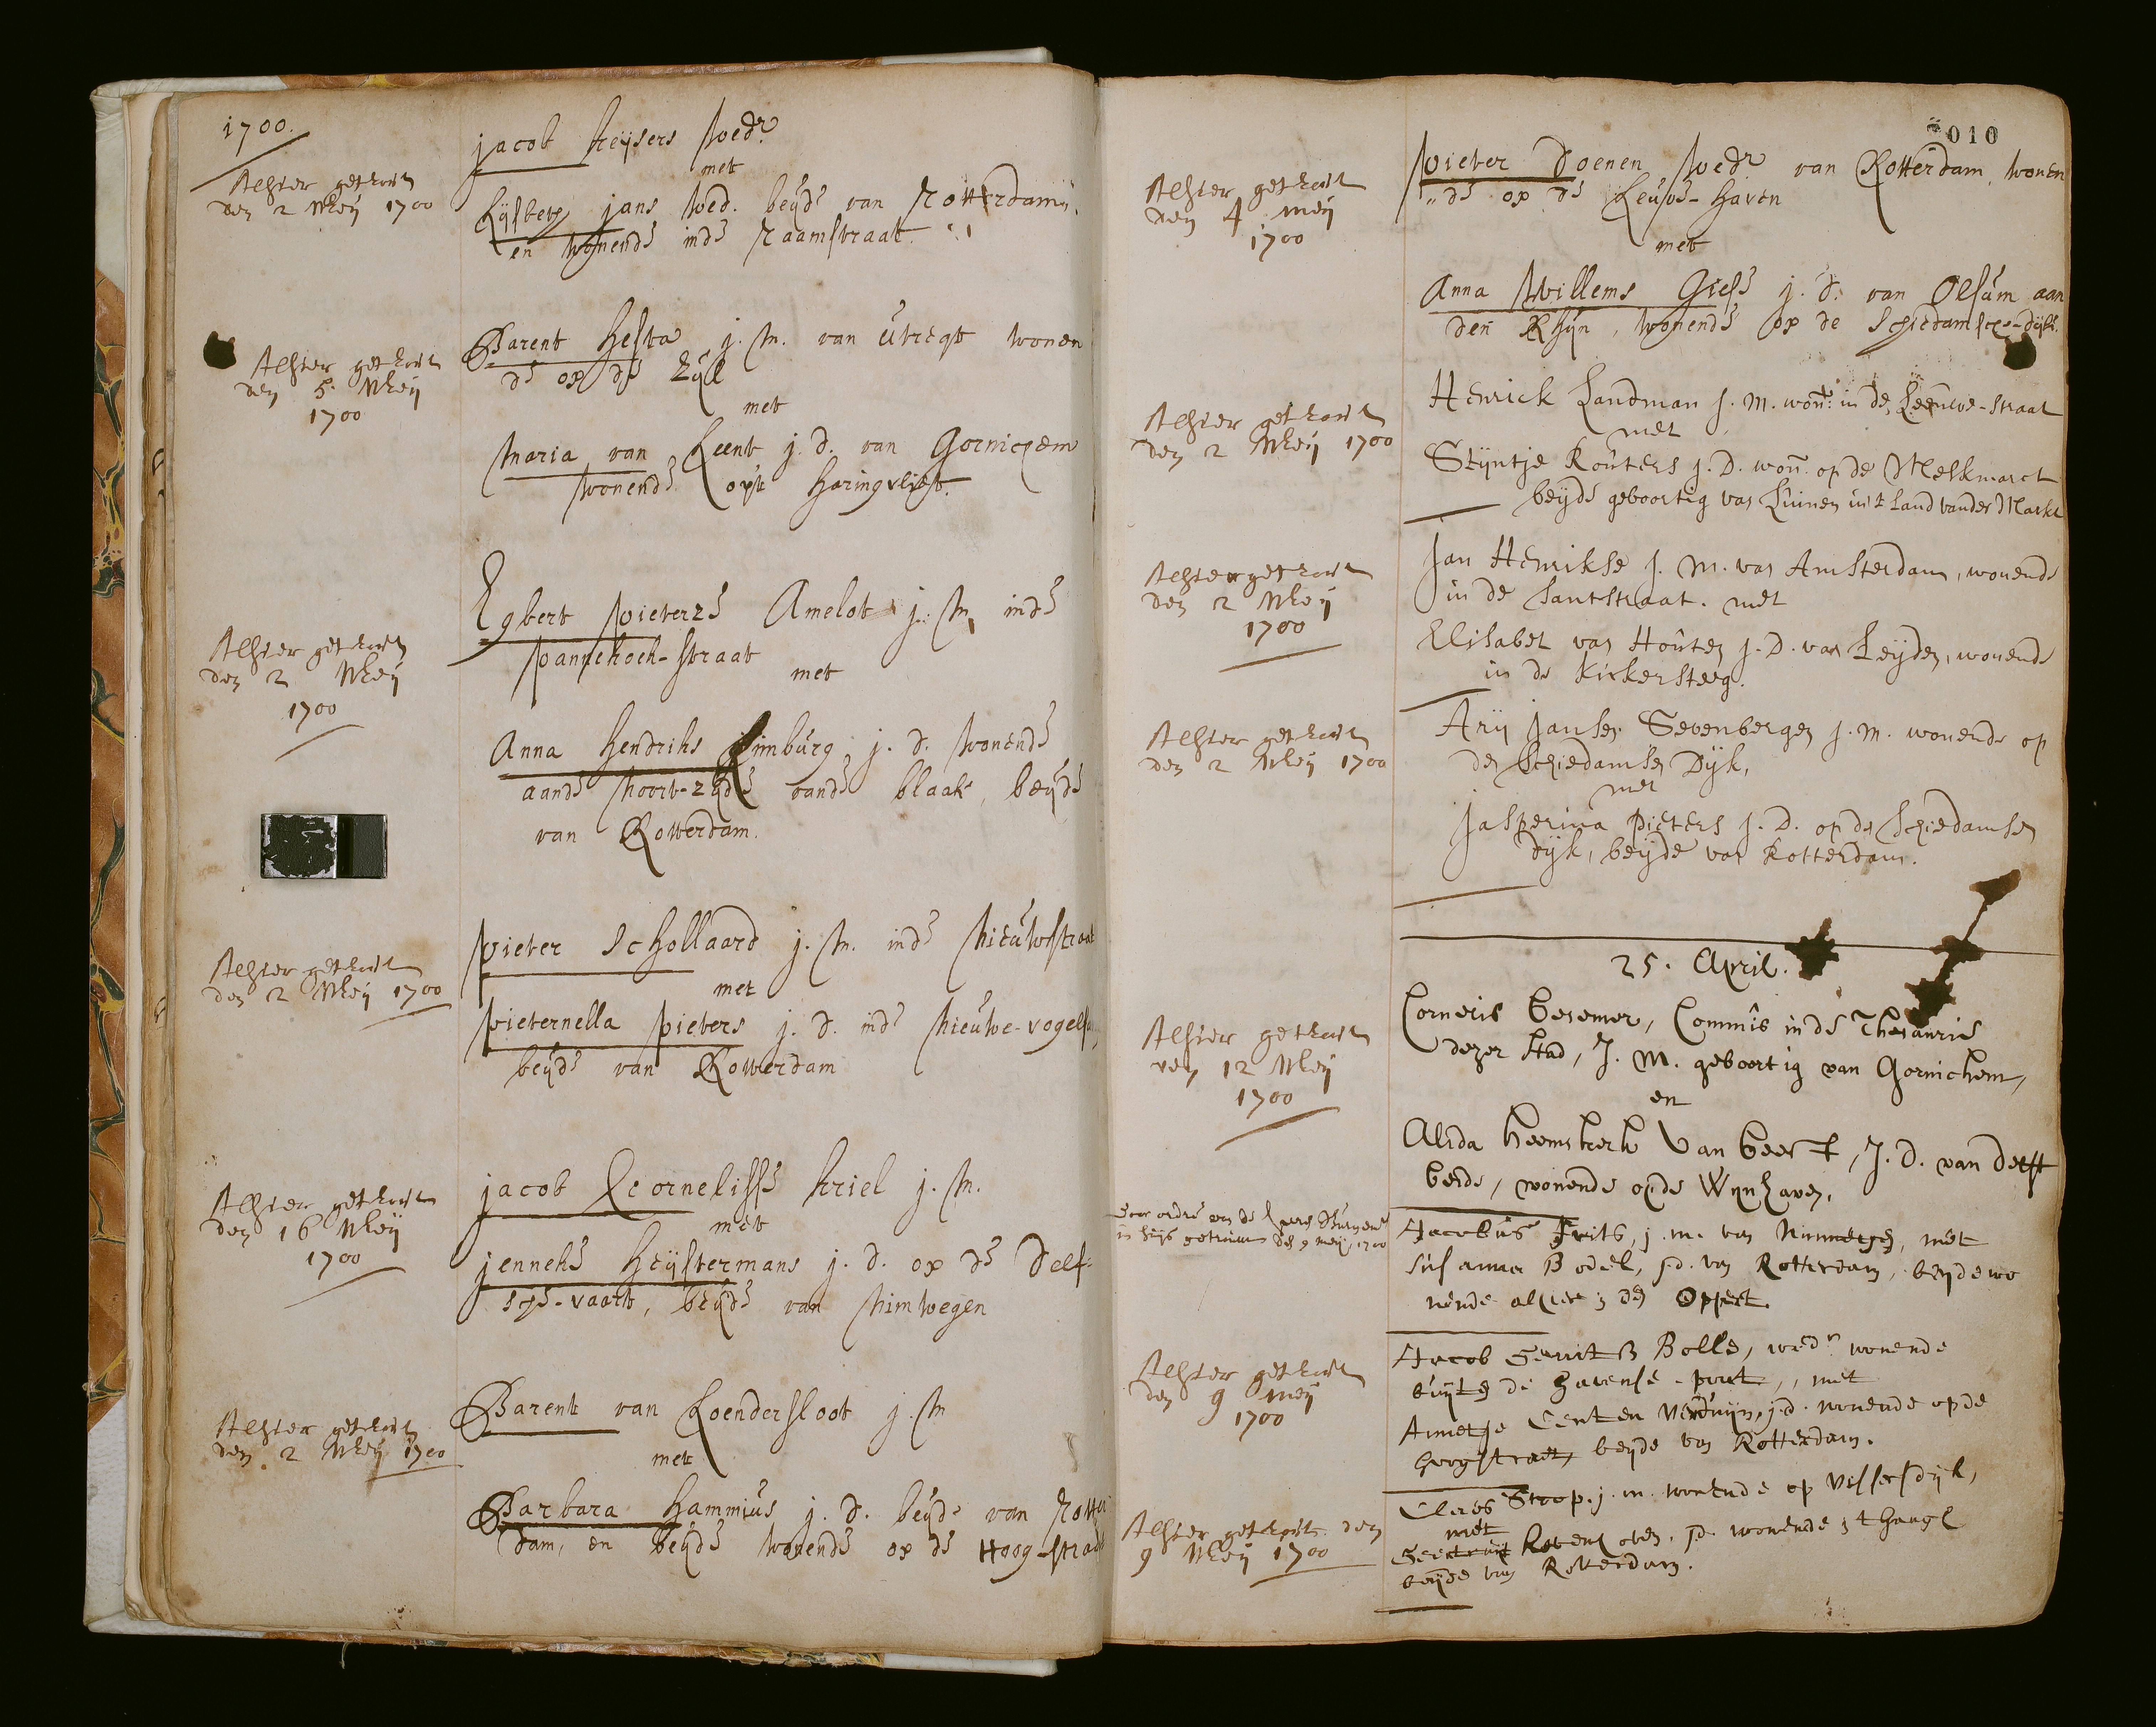 1700.
Alhier getrout
den 2 Meij 1700
jacob keijsers Wedr
met
Lijsbety jans Wed. beijde van Rotterdam
en wonende inde Raamstraat
Alhier getrout
den 5 Meij
1700
Barent Hesta j. M. van Utregt wonen
de op de Zijl
met
Maria van Leent j. d. van Gornichem
wonende opt Haringvliet.
Alhier getrout
den 2 Meij
1700
Egbert Pieterse Amelot j. M. inde
Pannekoek-straat
met
Anna Hendriks Limburg j. d. wonende
aande Noort-zijde vande blaak, beijde
van Rotterdam.
Alhier getrout
den 2 Meij 1700
Pieter Schollaard j. M. inde Nieuwstraat
met
Pieternella Pieters j. d. inde Nieuwe-vogel
beijde van Rotterdam
Alhier getrout
den 16 Meij
1700
jacob Cornelisse kriel j. M.
met
jenneke Heijstermans j. d. op de Delf-
sche-vaart, beijde van Nimwegen
Alhier getrout
den 2 Meij 1700
Barent van Coendersloot j. M
met
Barbara Hammius j. d. beijde van Rotter
dam, en beijde wonende op de Hoog-straat
010
Alhier getrout
den 4 meij
1700
Pieter Doenen Wedr van Rotterdam wonen
"de op de Leuve-Haven
met
Anna Willems Giese j. d. van Olsum aan
den Rhijn, wonende op de Schiedamsche-dijk.
Alhier getrout
den 2 Meij 1700
Henrick Landman j. M. wone: in de Leeuwe-straat
met
Stijntje Kouters j. D. won. op de Melkmarct
beijde geboortig van Luinen in't Land vander Markt
Alhier getrout
den 2 Meij
1700
Jan Henrikse j. M. van Amsterdam, wonende
in de Santstraat. met
Elisabet van Houten j. D. van Leijden, wonende
in de Kickersteeg.
Alhier getrout
den 2 Meij 1700
Arij Jansen Sevenbergen j. M. wonende op
den Schiedamsen Dijk,
met
Jasperina Pieters j. D. op de Schiedamsen
dijk, beijde van Rotterdam.
25. April.
Alhier getrout
den 12 Meij
1700
Cornelis Besemer, Commis in de Thesaurie
dezer stad, J. M. geboortig van Gornichem,
en
Alida heemskerk van Beest, J. D. van delft
beide, wonende op de Wijnhaven.
Door ordre van de Heeren Burgemrs
in huijs getrout den 9 meij 1700
Jacobus Frits, j. m. van Nimmegen, met
Susanna Bodel, j.d. van Rotterdam, beijde wo
nende alhier in den Oppert.
Alhier getrout
den 9 meij
1700
Jacob Gerrits Bolle, wedr wonende
buijten de Havense-poort, met
Annetje Centen Verduijn, j.d. wonende op de
hoogstraet, beijde van Rotterdam.
Alhier getrout den
9 Meij 1700
Claes Stoop. j. m. wonende op Vissersdijk,
met
Geertruijt jd. wonende
beijde van Rotterdam.